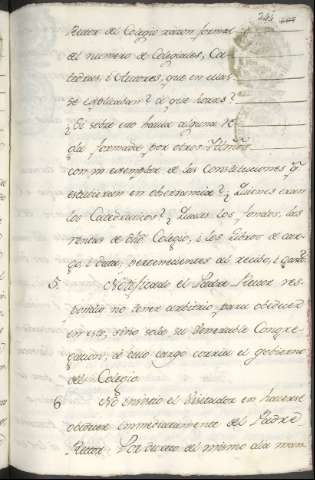 243
Rector del Colegio razon formal
del numero de Colegiales, Ca-
tedras, i Olecciones, que en ellas
se explicaban? a que horas?
¿Si sobre esto havia alguna re-
gla formada por otros
con un exemplar de las Constituciones q.
estubieran en observancia? ¿Quienes eran
los Catedraticos? ¿Quales los fondos, las
rentas de dho. Colegio, i los Libros de car-
go, i data, pertenecientes al recibo, i gasto?
5 Notificado el Padre Rector res-
pondio no tener arbitrio para obedecer
en esto, sino solo su Venerable Congre-
gacion, á cuio cargo corria el gobierno
del Colegio
6 No insistio el Visitador en hacerse
obedecer immediatamente del Padre
Rector. Por decreto del mismo dia man